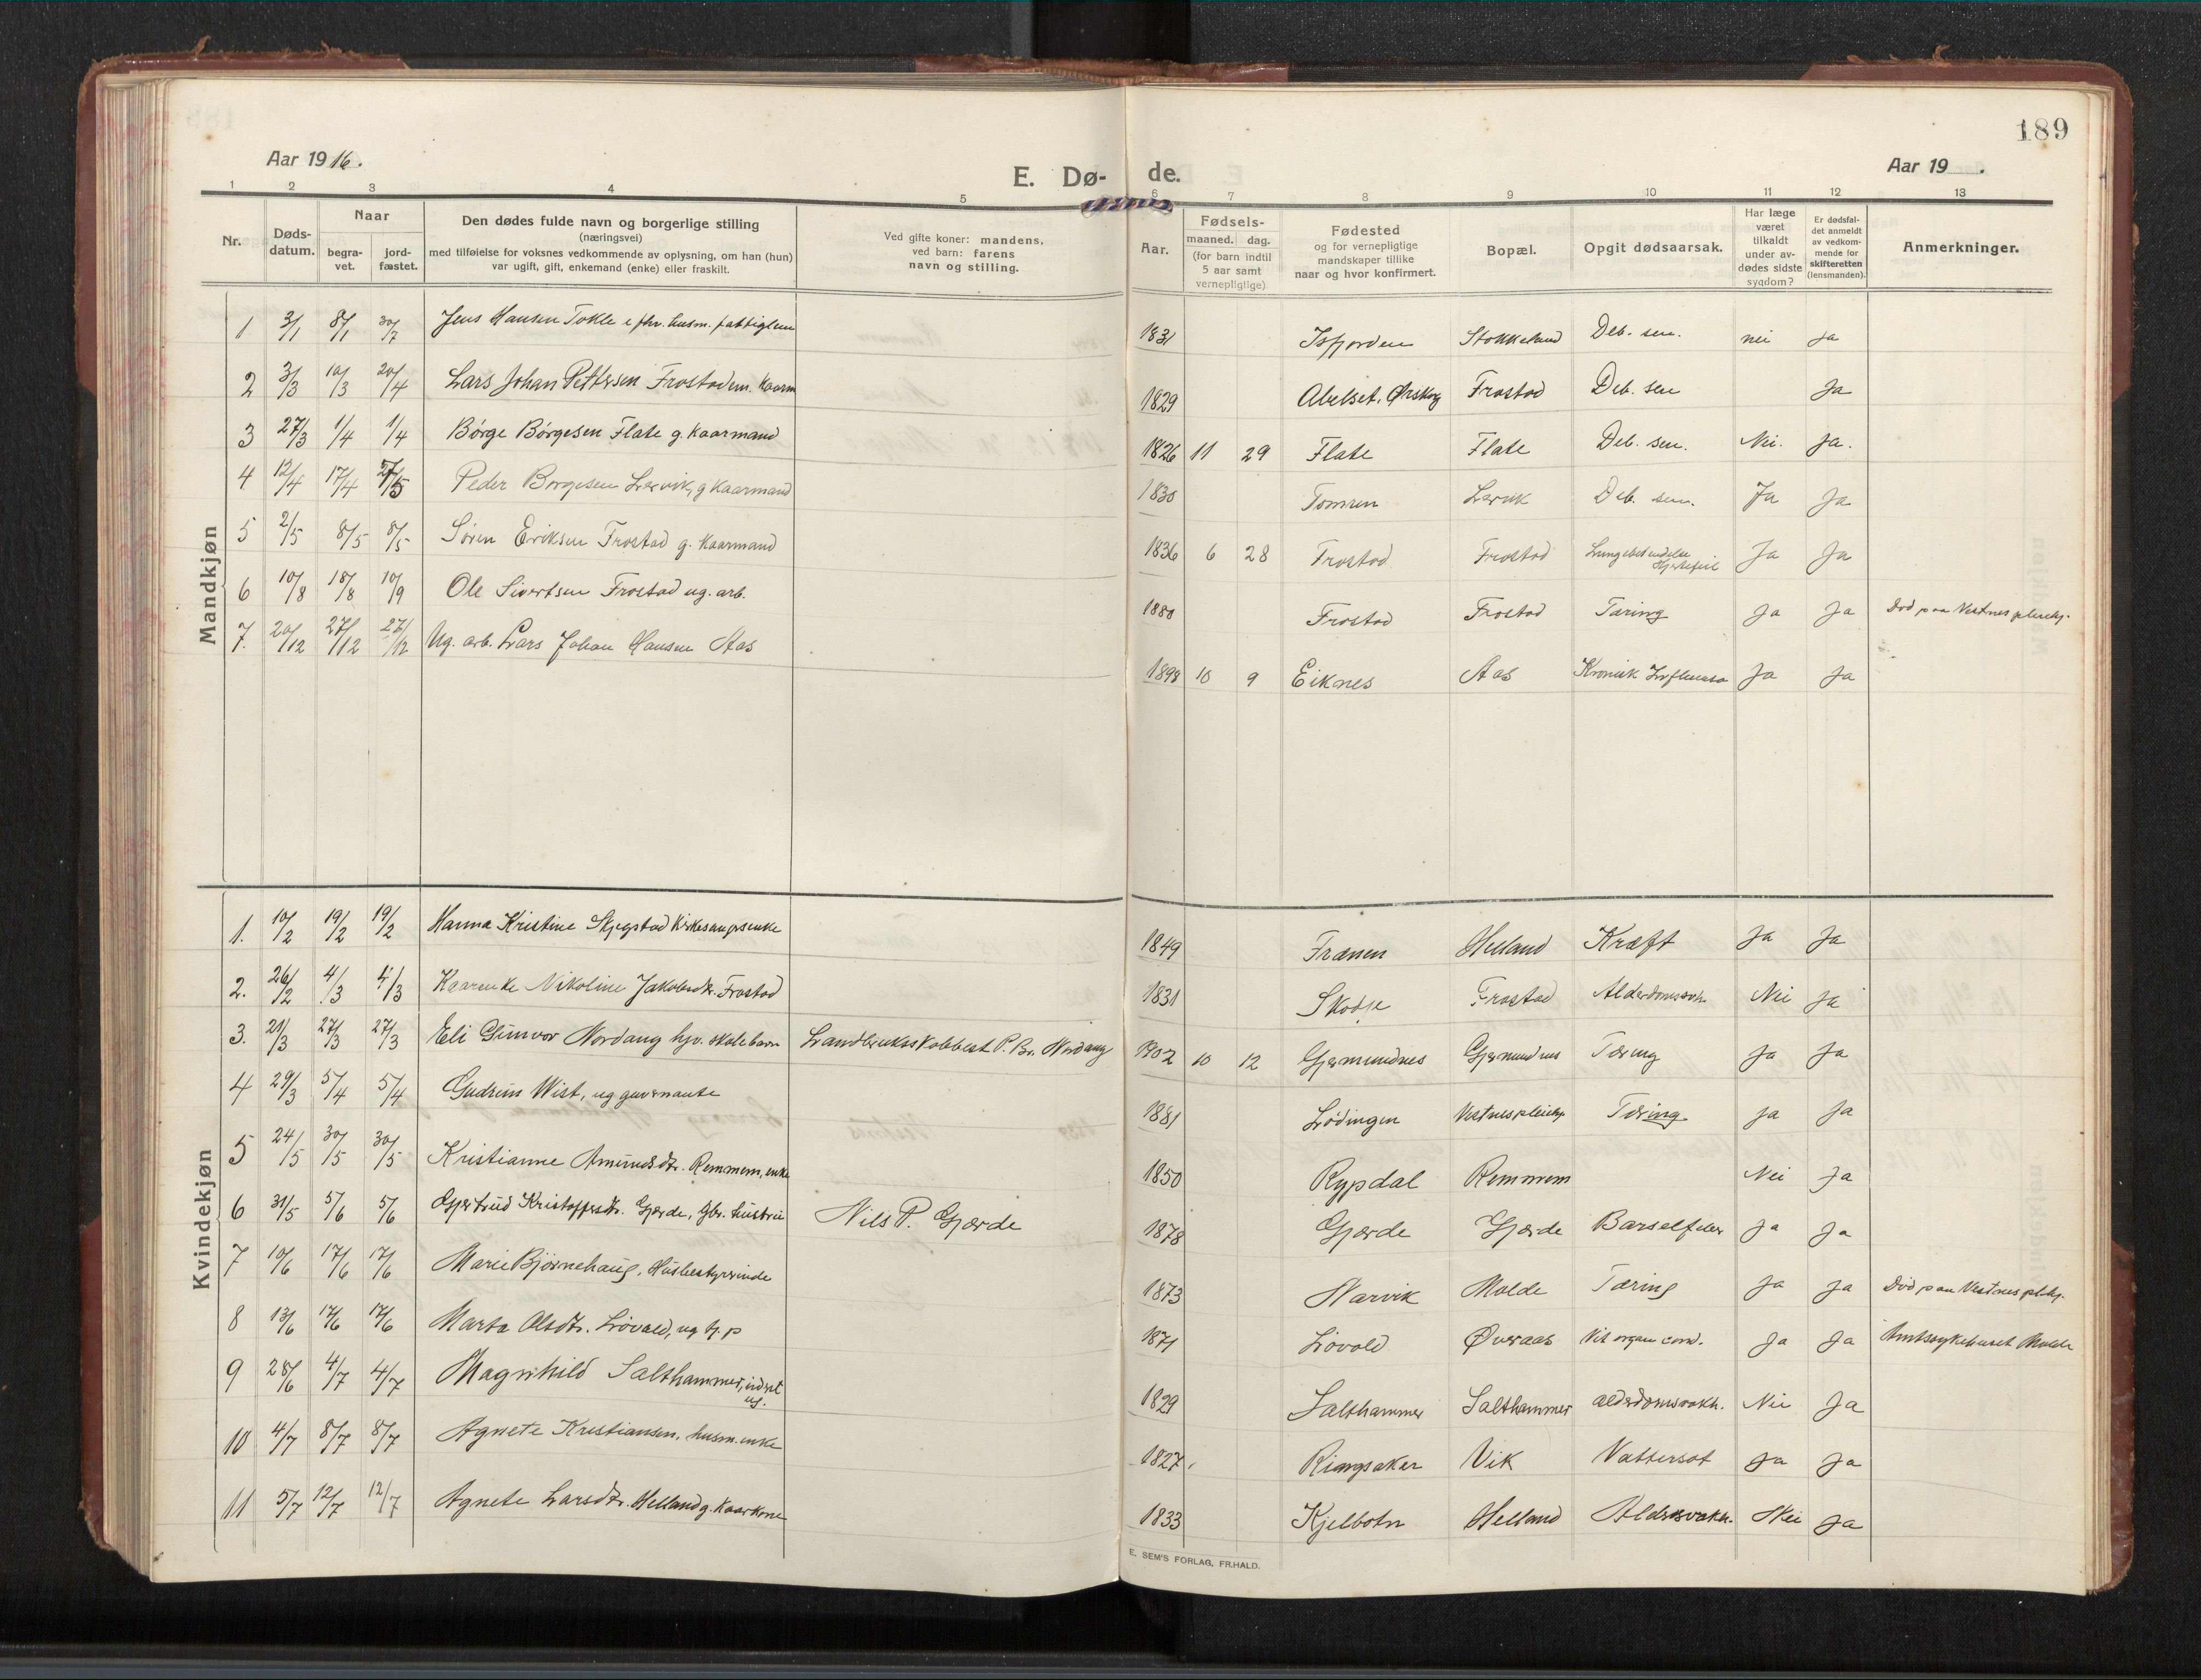 189
Aar 1916.
E. Dø- de.
Aar 19 .
1 2 3 4 5 6 7 8 9 10 11 12 13
Nr.
Døds-
datum.
Naar
begra-
vet.
jord-
fæstet.
Den dødes fulde navn og borgerlige stilling
(næringsvei)
med tilføielse for voksnes vedkommende av oplysning, om han (hun)
var ugift, gift, enkemand (enke) eller fraskilt.
Ved gifte koner: mandens,
ved barn: farens
navn og stilling.
Aar.
Fødsels-
maaned. dag.
(for barn indtil
5 aar samt
vernepligtige)
Fødested
og for vernepligtige
mandskaper tillike
naar og hvor konfirmert.
Bopæl.
Opgit dødsaarsak.
Har læge
været
tilkaldt
under av-
dødes sidste
sygdom?
Er dødsfal-
det anmeldt
av vedkom-
mende for
skifteretten
(lensmanden).
Anmerkninger.
Mandkjøn
1 3/1 8/1 30/7 Jens Hansen Tokle e fhv. husm. fattiglem 1831 Isfjorden Stokkeland Deb. sen. nei Ja
2 3/3 10/3 20/4 Lars Johan Pettersen Frostad em. Kaarm 1829 Abelset, Ørskog Frostad Deb. sen Ja
3 27/3 1/4 1/4 Børge Børgesen Flate g. Kaarmand 1826 11 29 Flate Flate Deb. sen. Nei. Ja.
4 12/4 17/4 27/5 Peder Børgesen Lervik, g Kaarmand 1830 Tomren Lervik Deb. sen. Ja Ja
5 2/5 8/5 8/5 Søren Eriksen Frostad g. Kaarmand 1836 6 28 Frostad Frostad Lungebetændelse Hjertefeil Ja Ja
6 10/8 18/8 10/9 Ole Sivertsen Frostad ug. arb. 1880 Frostad Frostad Tæring Ja Ja Død paa Vestnes pleiehj.
7. 20/12 27/12 27/12 Ug. arb. Lars Johan Hansen Aas 1898 10 9 Eiknes Aas Kronisk Influensa Ja Ja
Kvindekjøn
1. 10/2 19/2 19/2 Hanna Kristine Skjegstad Kirkesangersenke 1849 Frænen Helland Kræft Ja Ja
2. 26/2 4/3 4/3 Kaarenke Nikoline Jakobsdtr. Frostad 1831 Skodje Frostad Alderdomssvak. Nei Ja
3. 21/3 27/3 27/3 Eli Gunvor Nordang hjv. skolebarn Landbruksskolebest. P. Br. Nordang 1902 10 12 Gjermundnes Gjermundnes Tæring Ja Ja
4 29/3 5/4 5/4 Gudrun Wist, ug guvernante 1881 Lødingen Vestnes pleiehj. Tæring Ja Ja
5 24/5 30/5 30/5 Kristianne Amundsdtr. Remmem, enke 1850 Rypdal Remmem Nei Ja
6 31/5 5/6 5/6 Gjertrud Kristoffersdtr. Gjærde, gbr. hustru Nils P. Gjærde 1878 Gjærde Gjærde Barselfeber Ja Ja
7 10/6 17/6 17/6 Marie Bjørnehaug, Husbestyrerinde 1873 Harvik Molde Tæring Ja Ja Død paa Vestnes plhj.
8 13/6 17/6 17/6 Marta Olsdtr. Løvold, ug tj. p 1871 Løvold Øveraas Vit. organ. cord. Ja Ja Amtssykehuset Molde
9 28/6 4/7 4/7 Magnhild Salthammer, inderst ug. 1829 Salthammer Salthammer alderdomssvakh. Nei Ja
10 4/7 8/7 8/7 Agnete Kristiansen, husm.enke 1827. Ringsaker Vik Vattersot Ja Ja
11 5/7 12/7 12/7 Agnete Larsdtr. Helland g. Kaarkone 1833 Kjelbotn Helland Aldersvakh. Nei Ja
E. SEM'S FORLAG, FR.HALD.